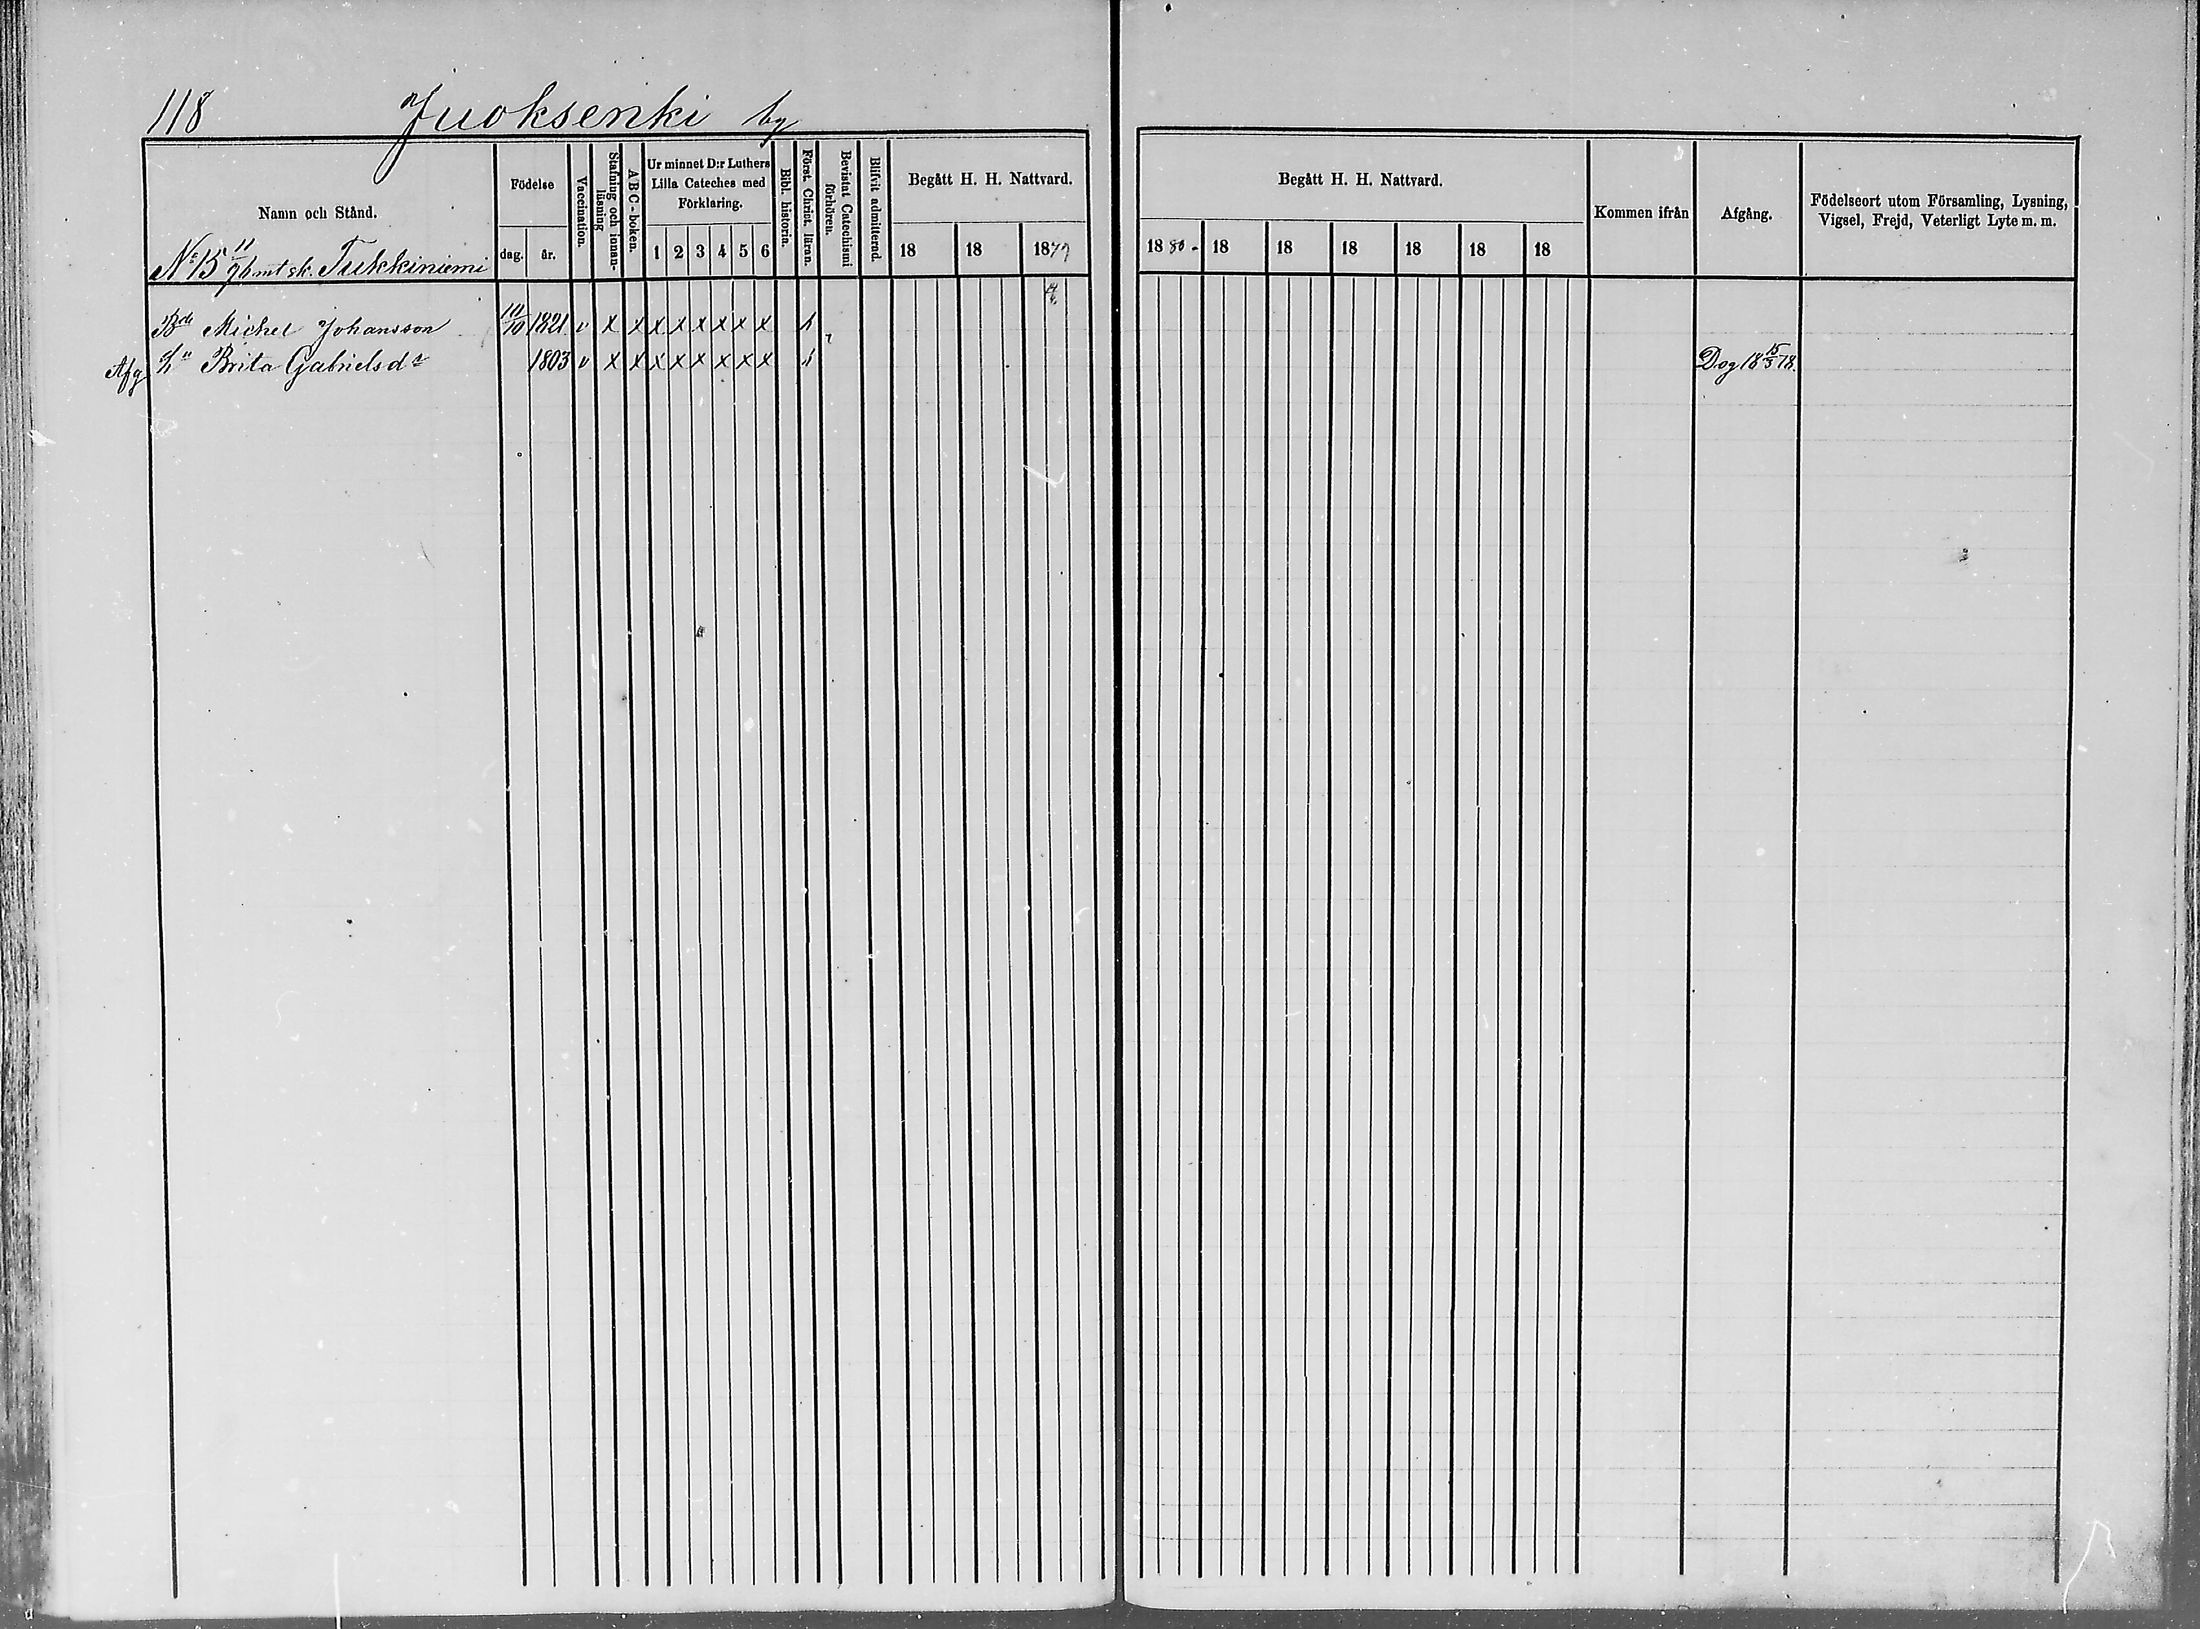 118 Juoksenki by
Namn och Stånd.
Födelse
dag.
år.
Vaccination.
Stafning och innan-
läsning
A B C - boken.
Ur minnet D:r Luthers
Lilla Cateches med
Förklaring.
1 2 3 4 5 6
Bibl. historia.
Först. Christ. läran.
Bevistat Catechismi
förhören.
Blifvit admitterad.
Begått H. H. Nattvard.
18 18 1879
Begått H. H. Nattvard.
1880 - 18 18 18 18 18 18
Kommen ifrån
Afgång.
Födelseort utom Församling, Lysning,
Vigsel, Frejd, Veterligt Lyte m. m.
No 15 11/96 mt sk. Tukkiniemi
Bde Michel Johansson 10/10 1821 v x x x x x x x x
Afg Hu Brita Gabrielsdr 1803 v x x x x x x x x Dog 18 15/5 78.